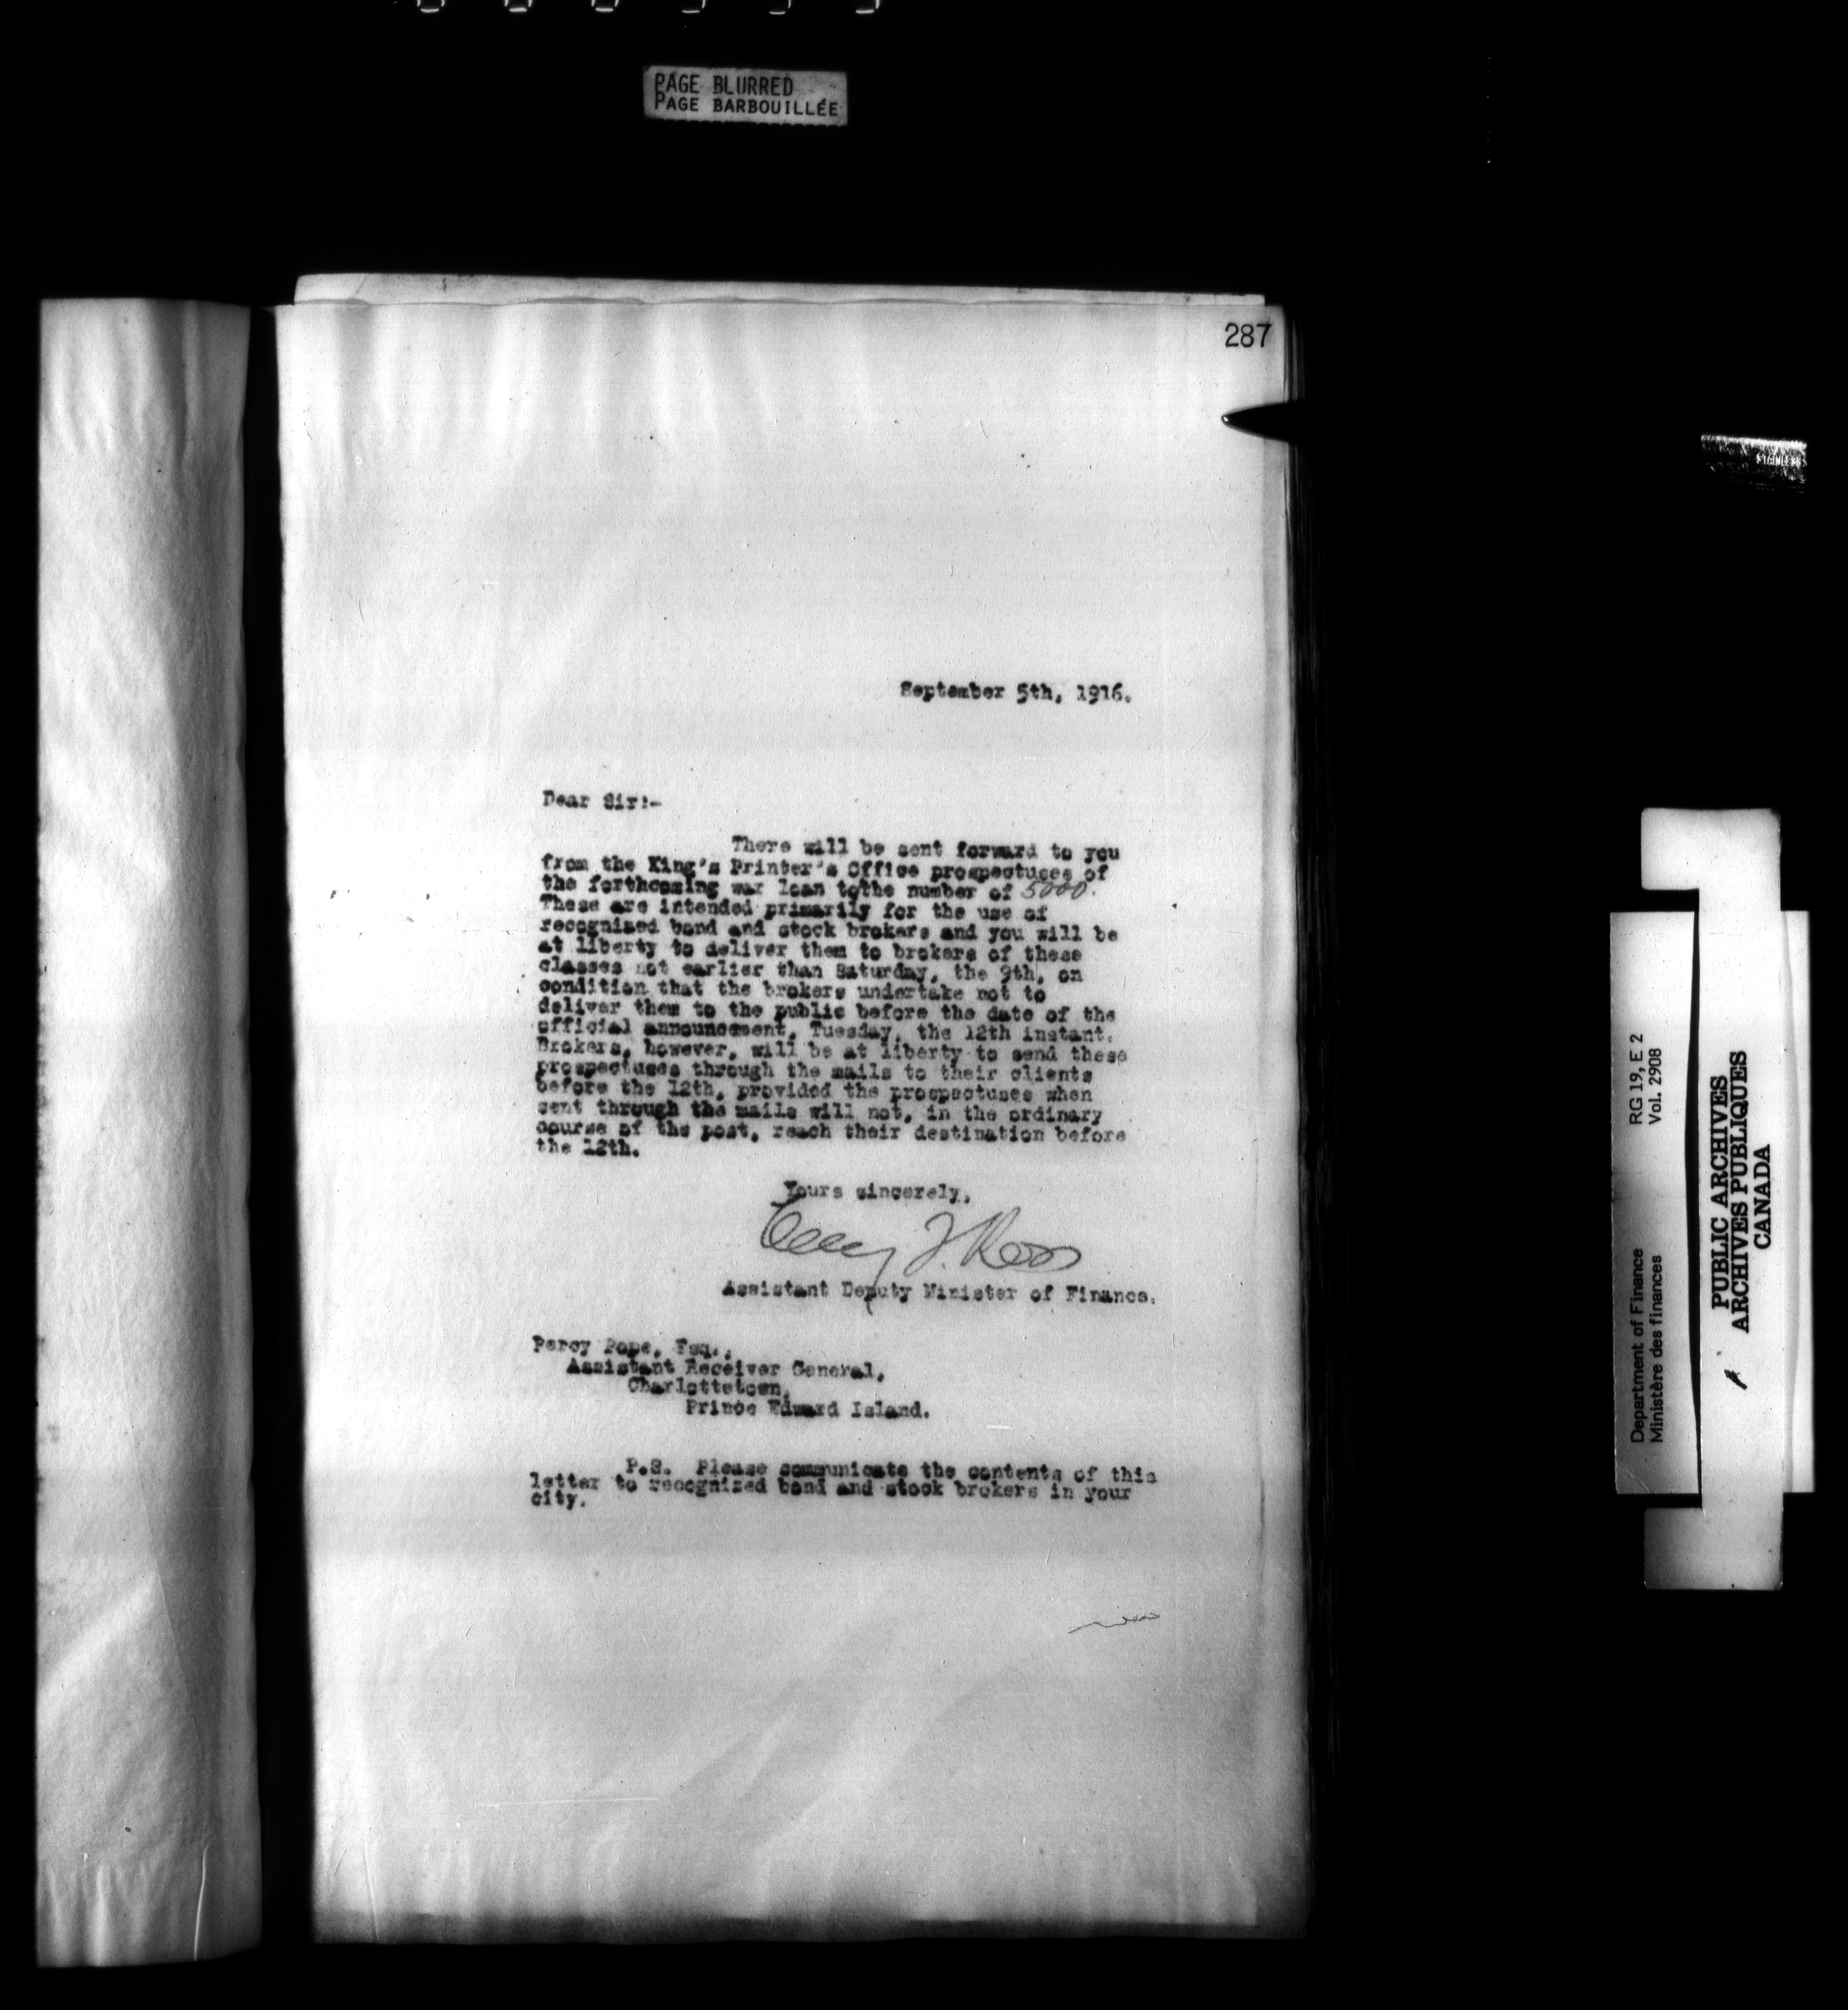 PAGE BLURRED
PAGE BARBOUILLÉE
287
September 5th, 1916.
Dear Sir:-
There will be sent forward to you
from the King's Printer's Office prospectuses of
the forthcoming war loan to the number of 5000.
These are intended primarily for the use of
recognized bond and stock brokers and you will be
at liberty to deliver them to brokers of these
classes not earlier than Saturday, the 9th, on
condition that the brokers undertake not to
deliver them to the public before the date of the
official announcement, Tuesday, the 12th instant.
Brokers, however, will be at liberty to send these
prospectuses through the mails to their clients
before the 12th, provided the prospectuses when
sent through the mails will not, in the ordinary
course of the post, reach their destination before
the 12th.
Yours sincerely,
Assistant Deputy Minister of Finance.
Percy Pope, Esq.,
Assistant Receiver General,
Charlottetown,
Prince Edward Island.
P.S. Please communicate the contents of this
letter to recognized bond and stock brokers in your
city.
STAINLESS
Department of Finance RG 19, E 2
Ministère des finances Vol. 2908
PUBLIC ARCHIVES
ARCHIVES PUBLIQUES
CANADA